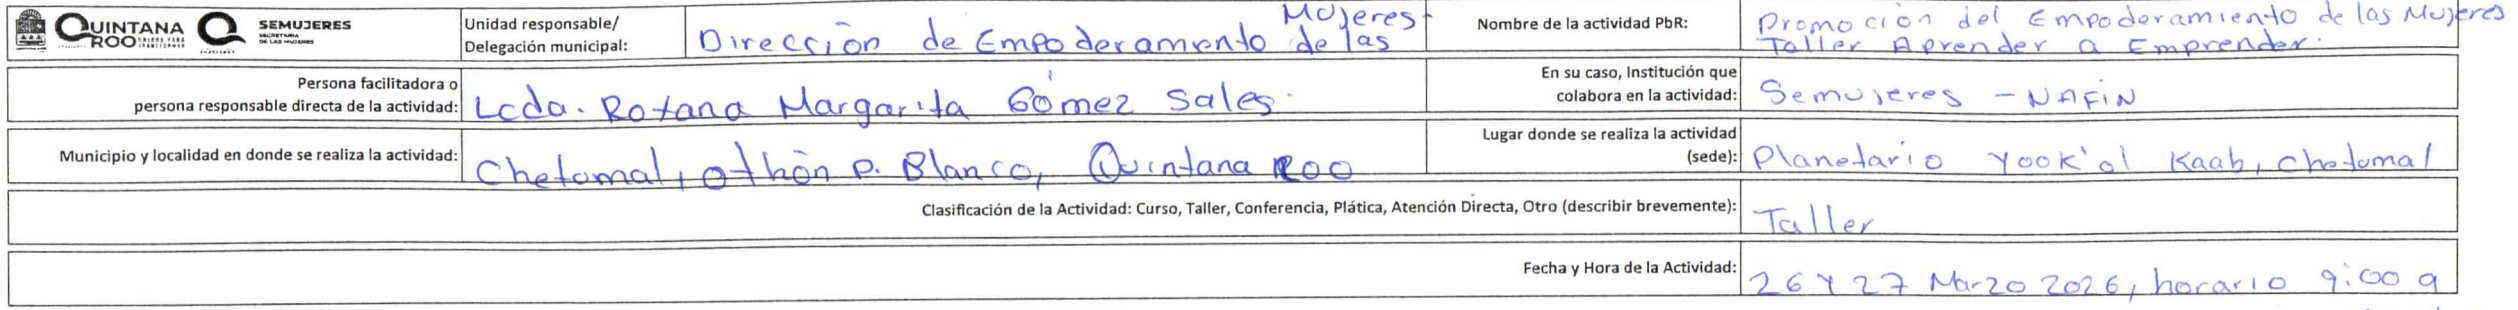 QUINTANA ROO
SEMUJERES
SECRETARÍA DE LAS MUJERES
Unidad responsable/
Delegación municipal:
Dirección de Empoderamiento de las Mujeres.
Nombre de la actividad PbR:
Promoción del Empoderamiento de las Mujeres
Taller Aprender a Emprender.
Persona facilitadora o
persona responsable directa de la actividad:
Lcda. Roxana Margarita Gómez Sales.
En su caso, Institución que
colabora en la actividad:
Semujeres - NAFIN
Municipio y localidad en donde se realiza la actividad:
Chetumal, Othón P. Blanco, Quintana Roo
Lugar donde se realiza la actividad
(sede):
Planetario Yook'ol Kaab, Chetumal
Clasificación de la Actividad: Curso, Taller, Conferencia, Plática, Atención Directa, Otro (describir brevemente):
Taller
Fecha y Hora de la Actividad:
26 Y 27 Marzo 2026, horario 9:00 a